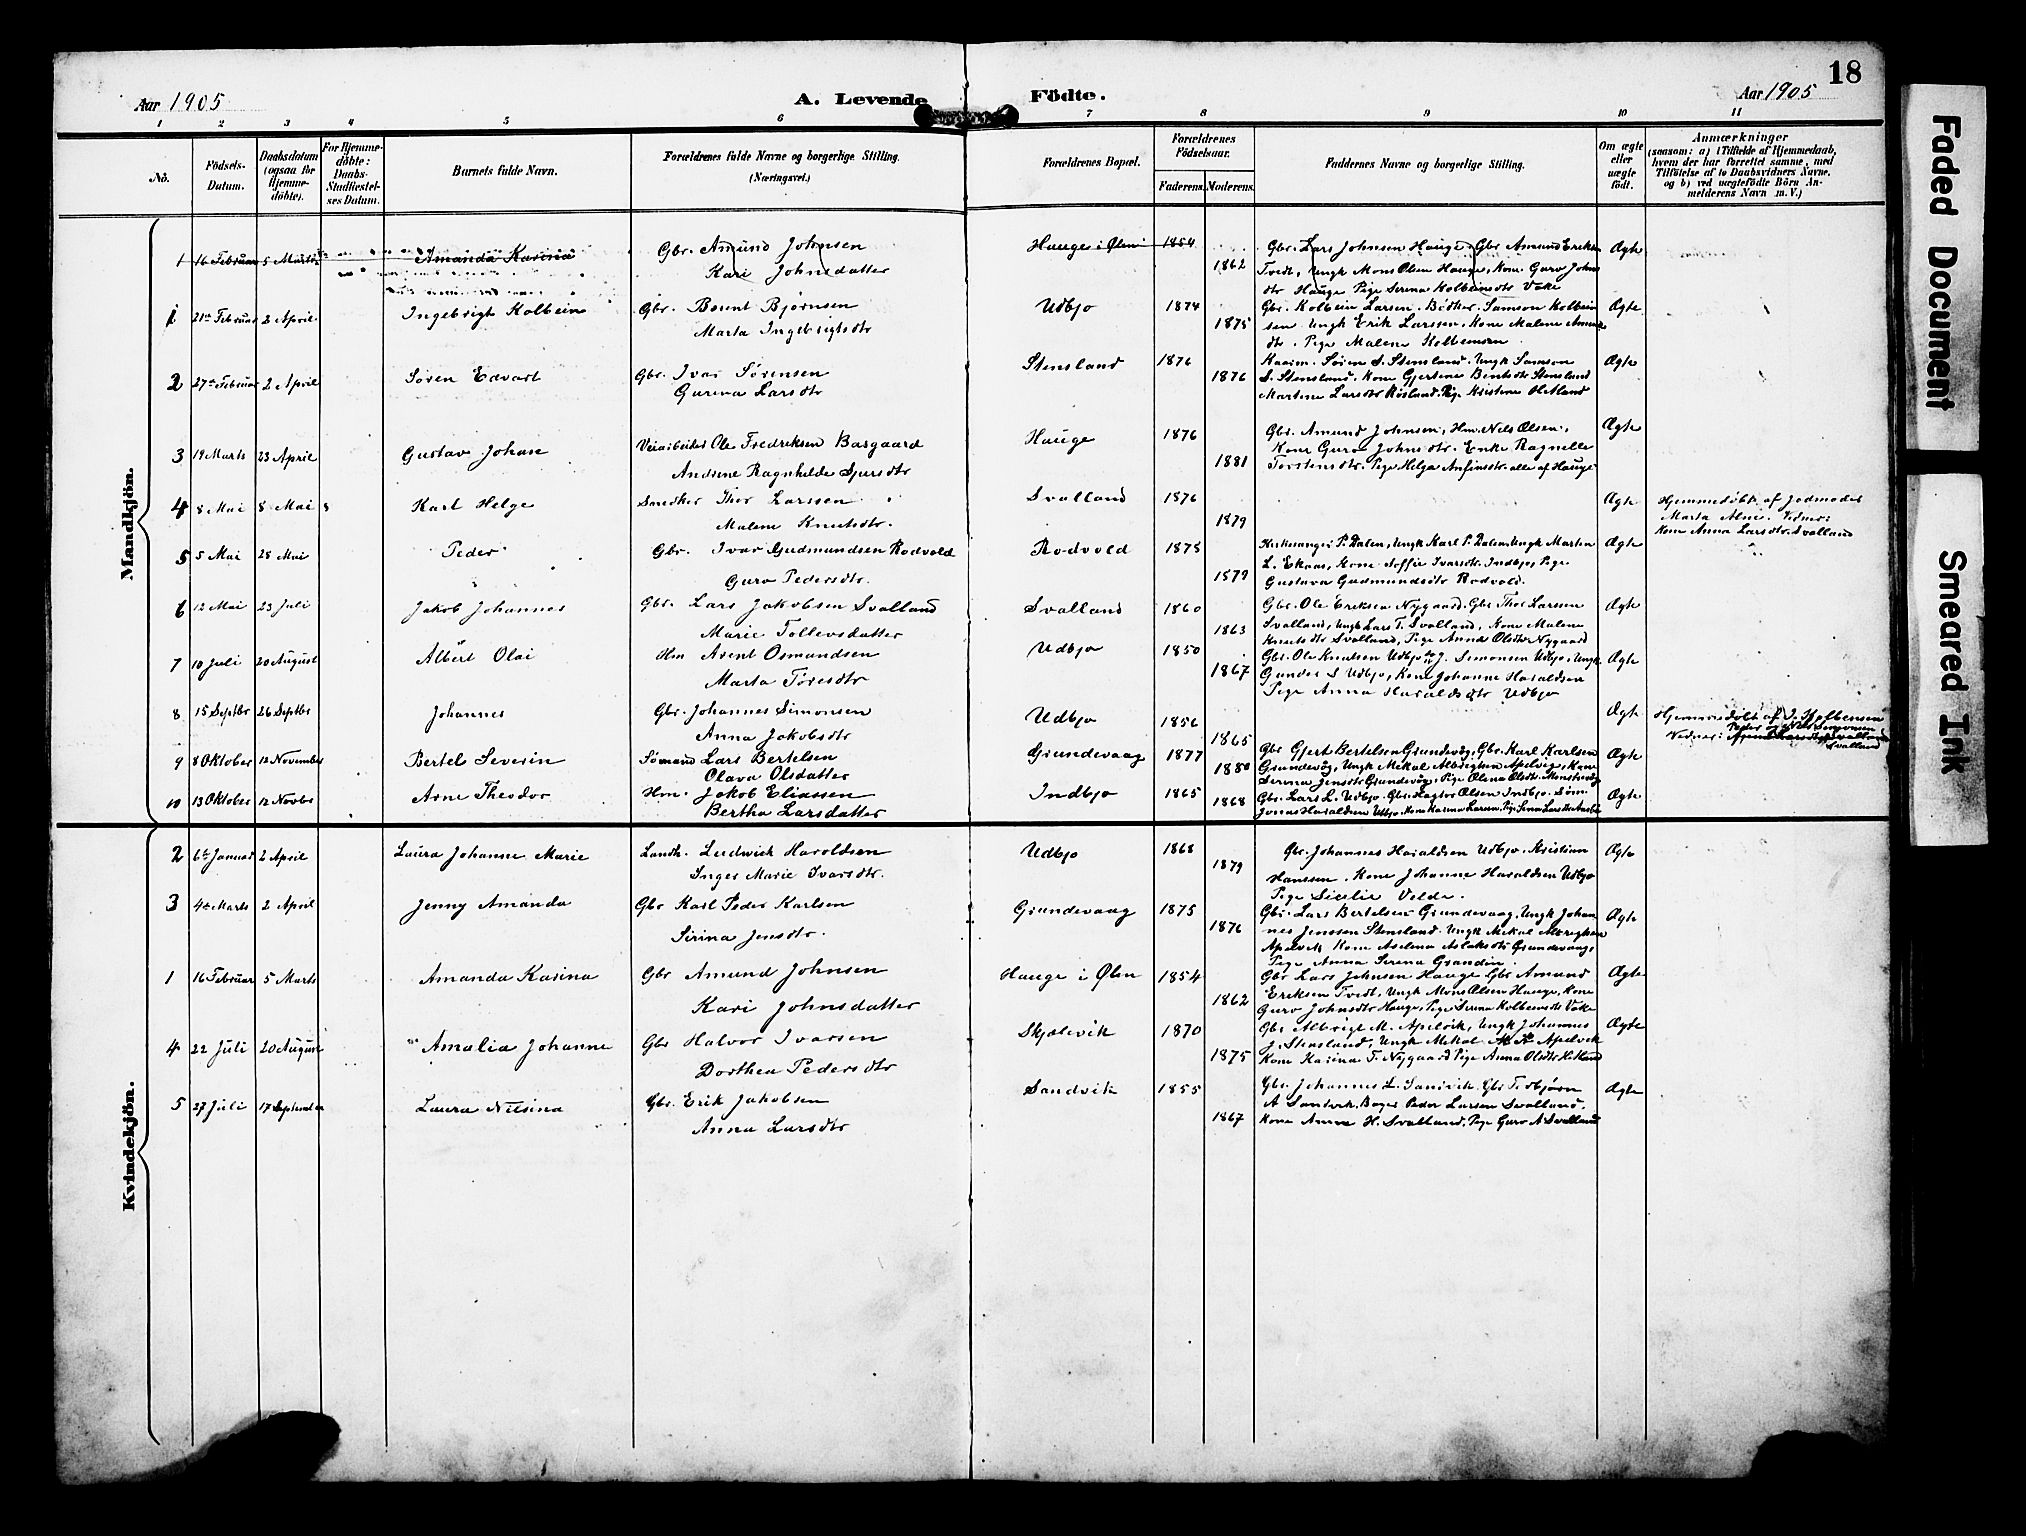 18
Aar 1905
A. Levende Födte.
Aar 1905
1 2 3 4 5 6 7 8 9 10 11
No.
Födsels-Datum.
Daabsdatum (ogsaa for Hjemme-döbte).
For Hjemme-döbte: Daabs-Stadfæstel-ses Datum.
Barnets fulde Navn.
Forældrenes fulde Navne og borgerlige Stilling.
(Næringsvei.)
Forældrenes Bopæl.
Forældrenes Födselsaar.
Faderens. Moderens.
Faddernes Navne og borgerlige Stilling.
Om ægte eller uægte födt.
Anmærkninger
(saasom: a) i Tilfælde af Hjemmedaab,
hvem der har forrettet samme, med
Tilföielse af to Daabsvidners Navne,
og b) ved uægtefödte Börn An-
melderens Navn m. V.)
Mandkjön.
1 16 Februar 5 Marts Amanda Karina Gbr. Amund Johnsen Hauge i Ølen 1854 Gbr. Lars Johnsen Hauge, Gbr Amund Eriksen Ægte
Kari Johnsdatter 1862 Tvedt, Ungk Mons Olsen Hauge, Kone Guro Johns
dtr Hauge Pige Serena Kolbeinsdtr Vake
1 21de Februar 2 April. Ingebrigt Kolbein Gbr. Berent Bjørnsen Udbjo 1874 Gbr. Kolbein Larsen. Bødker. Samson Kolbein Ægte
Marta Ingebrigtsdtr 1875 sen Ungk Erik Larssen. Kone Malene Amunds
dtr. Pige Malene Kolbeinsen
2 27de Februar 2 April Søren Edvart Gbr. Ivar Sørensen Stensland 1876 Kaarm. Søren S. Stensland. Ungk Samson Ægte
Gurina Larsdtr 1876 S. Stensland. Kone Gjertine Bentsdtr Stensland
Martine Larsdtr Røsland. Pige Kristine Oletland
3 19 Marts 23 April Gustav Johan Veiarbeider Ole Fredriksen Basgaard Hauge 1876 Gbr. Amund Johnsen, Hm. Nils Olsen, Ægte
Andrine Ragnhilde Sjursdtr 1881 Kone Guro Johnsdtr. Enke Ragnelle
Torstensdtr. Pige Helga Anfinsdtr. alle af Hauge
4 8 Mai 8 Mai 8 Karl Helge Snedker Thor Larssen Svalland 1876 Ægte Hjemmedøbt af Jodmoder
Malene Knutsdtr. 1879 Marta Alne. Vidner:
Kone Anna Larsdtr. Svalland
5 5 Mai 28 Mai Peder Gbr. Ivar Gudmundsen Rodvold Rodvold 1875 Kirkesanger P. Dalen, Ungk Karl P. Dalen, Ungk Martin Ægte
Guro Pedersdtr. 1879 L. Ekaas, Kone Soffie Ivarsdtr. Indbjo, Pige
Gustava Gudmundsdtr Rodvold.
6 12 Mai 23 Juli Jakob Johannes Gbr. Lars Jakobsen Svalland Svalland 1860 Gbr. Ole Eriksen Nygaard. Gbr Thor Larsen Ægte
Marie Tollevsdatter 1863 Svalland, Ungk Lars T. Svalland, Kone Malene
Knutsdtr Svalland, Pige Anna Olsdtr Nygaard
7 10 Juli 20 August Albert Olai Hm Arent Osmundsen Udbjo 1850 Gbr. Ole Knutsen Udbjo J. Simonsen Udbjo, Ungk Ægte
Marta Toresdtr 1867 Gunder S Udbjo, Kone Johanne Haraldsen
Pige Anna Haraldsdtr Udbjo
8 15 Septbr 26 Septbr Johannes Gbr. Johannes Simonsen Udbjo 1856 Ægte Hjemmedøbt af J. Kolbensen
Anna Jakobsdtr 1865 Vidner: Peder og Nils
Svalland
9 8 Oktober 12 November Bertel Severin Sømand Lars Bertelsen Grundevaag 1877 Gbr Gjert Bertelsen Grundvåg, Gbr. Karl Karlsen Ægte
Olava Olsdatter 1880 Grundevåg, Ungk Mekal Albrigtsen Apelvig, Kone
Serina Jensdtr Grundevåg, Pige Olena Olsdtr
10 13 Oktober 12 Novbr Arne Theodor Hm. Jakob Eliassen Indbjo 1865 Gbr. Lars L. Udbjo. Gbr. Hagtor Olsen Indbjo. Sønn Ægte
Bertha Larsdatter 1868 Jonas Haraldsen Udbjo. Kone Karina Larsen, Pige
Kvindekjön.
2 6te Januar 2 April Laura Johanne Marie Landh. Ludwick Haroldsen Udbjo 1868 Gbr. Johannes Haraldsen Udbjo. Kristian Ægte
Inger Marie Ivarsdtr. 1879 Hanssen. Kone Johanne Haraldsen Udbjo
Pige Sicelie Velde.
3 4de Marts 2 April Jenny Amanda Gbr Karl Peder Karlsen Grundevaag 1875 Gbr. Lars Bertelsen Grundevaag, Ungk Johan Ægte
Sirina Jensdtr. 1876 nes Jenssen Stensland. Ungk Mekal Albrigtsen
Apelvik Kone Aselena Aslaksdtr Grundevaag,
Pige Anna Serena Grandin.
1 16 Februar 5 Marts Amanda Karina Gbr Amund Johnsen Hauge i Ølen 1854 Gbr Lars Johnsen Hauge Gbr Amund Ægte
Kari Johnsdatter 1862 Eriksen Tvedt, Ungk Mons Olsen Hauge, Kone
Guro Johnsdtr Hauge, Pige Serina Kolbeinsdtr Vake
4 22 Juli 20 August Amalia Johanne Gbr Halvor Ivarsen Skjølevik 1870 Gbr Albrigt M. Apelvik, Ungk Johannes Ægte
Dorthea Pedersdtr 1875 J. Stensland, Ungk Mekal Apelvik
Kone Karina T. Nygaard Pige Anna Olsdtr
5 27 Juli 17 September Laura Nilsina Gbr. Erik Jakobsen Sandvik 1855 Gbr. Johannes L. Sandvik Gbr Torbjørn Ægte
Anna Larsdtr 1867 A Sandvik, Bager Peder Larsen Svalland.
Kone Anna H. Svalland, Pige Guro A Svalland
Faded Document
Smeared Ink